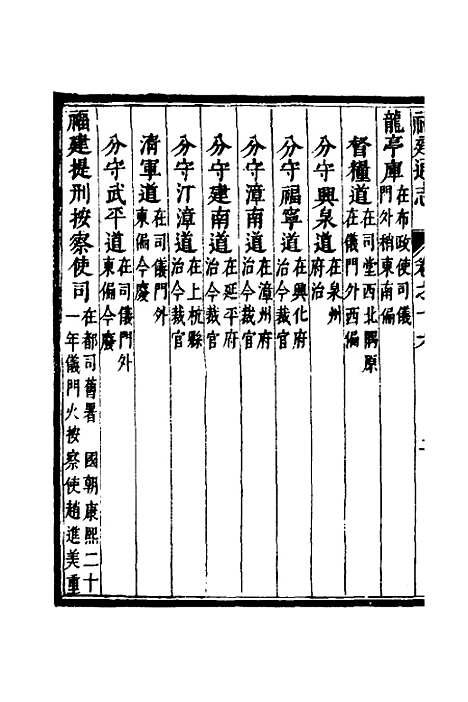 福建通志 卷之十六
龍亭庫 在布政使司儀
門外稍東南偏
督糧道 在司堂西北隅原
在儀門外西偏
分守興泉道 在泉州
府治
分守福寧道 在興化府
治今裁官
分守漳南道 在漳州府
治今裁官
分守建南道 在延平府
治今裁官
分守汀漳道 在上杭縣
治今裁官
清軍道 在司儀門外
東偏今廢
分守武平道 在司儀門外
東偏今廢
福建提刑按察使司 在都司舊署 國朝康熙二十
一年儀門火按察使趙進美重